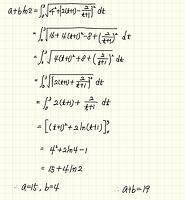 a+bln2 = ∫₀³ √(4² + {2(t+1) − 2/(t+1)}²) dt
= ∫₀³ √(16 + 4(t+1)² − 8 + (2/(t+1))²) dt
= ∫₀³ √(4(t+1)² + 8 + (2/(t+1))²) dt
= ∫₀³ √({2(t+1) + 2/(t+1)}²) dt
= ∫₀³ 2(t+1) + 2/(t+1) dt
= [(t+1)² + 2ln(t+1)]₀³
= 4² + 2ln4 − 1
= 15 + 4ln2
∴ a=15, b=4 ∴ a+b=19